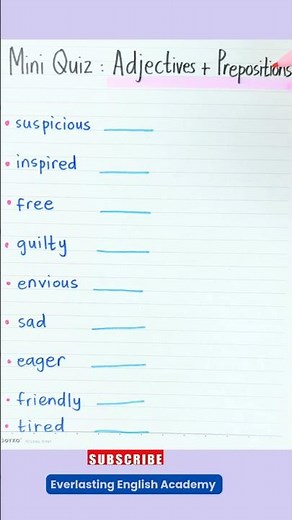 Mini Quiz : Adjectives + Prepositions
• suspicious ______
• inspired ______
• free ______
• guilty ______
• envious ______
• sad ______
• eager ______
• friendly ______
• tired ______
SUBSCRIBE
Everlasting English Academy